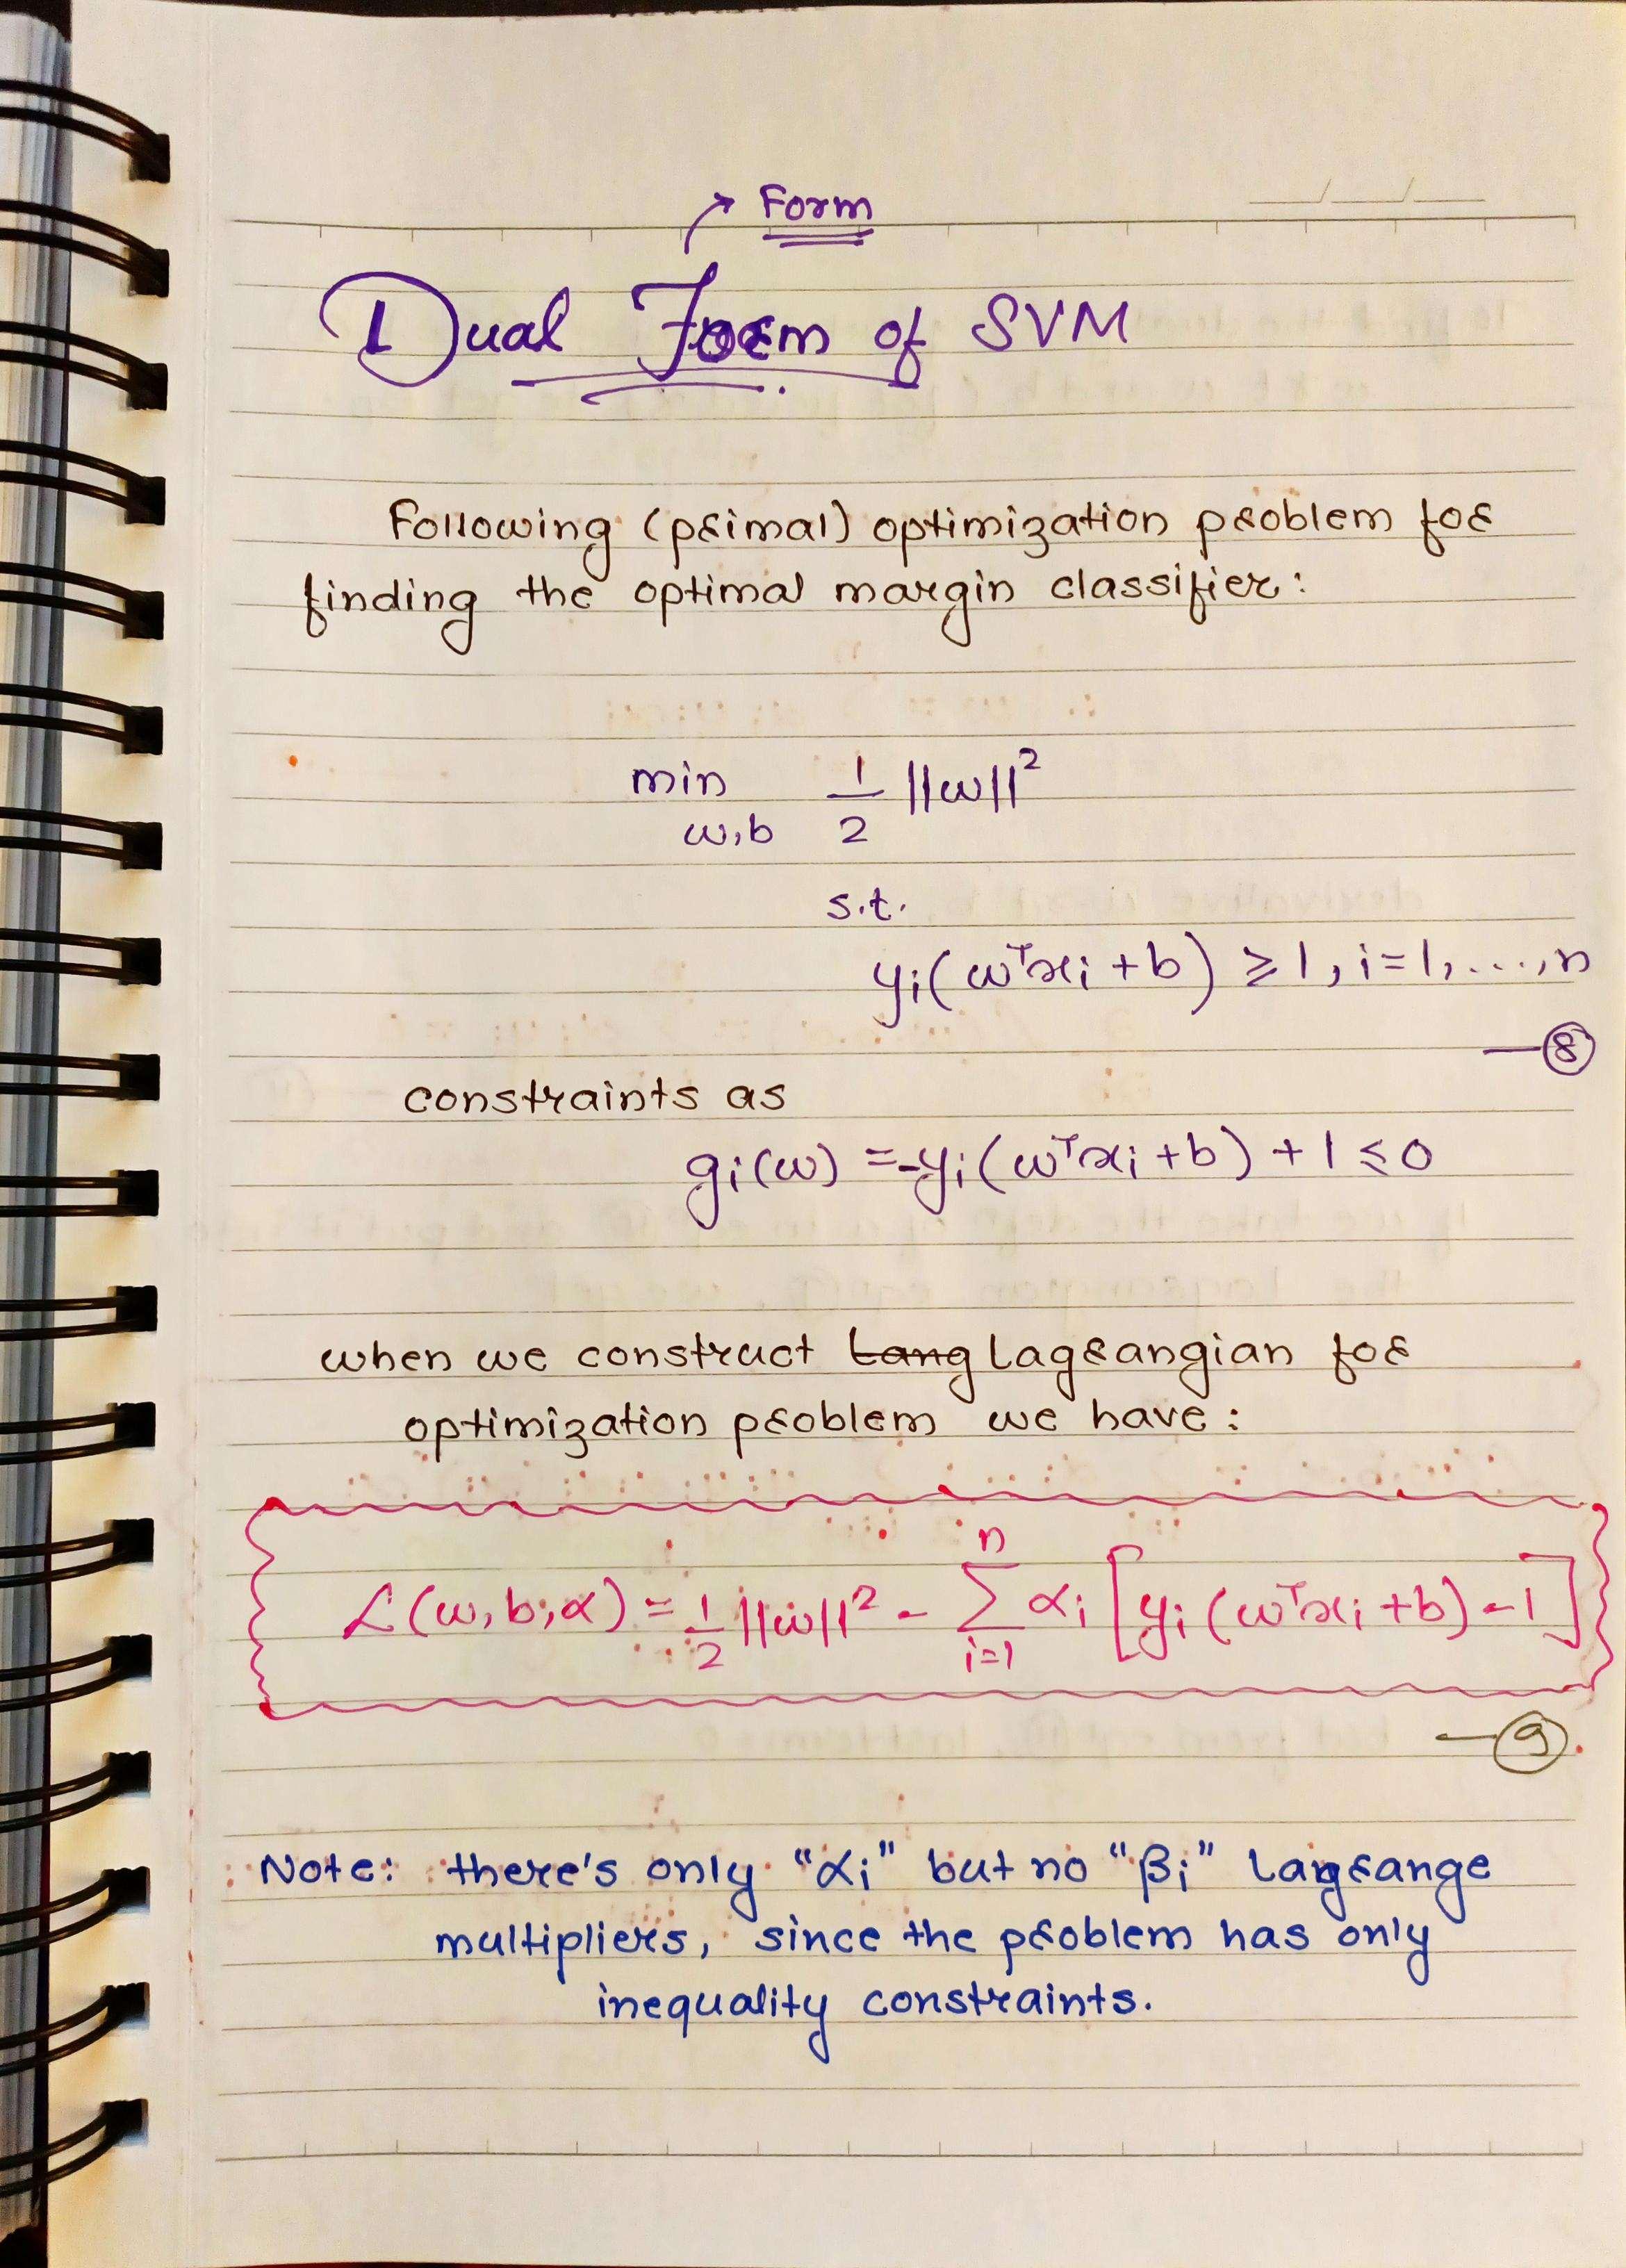 → Form
Dual Form of SVM
Following (primal) optimization problem for
finding the optimal margin classifier:
min 1/2 ||w||²
w,b
s.t.
yᵢ(wᵀxᵢ + b) ≥ 1, i=1, ..., n
—⑧
constraints as
gᵢ(w) = -yᵢ(wᵀxᵢ + b) + 1 ≤ 0
when we construct ~~Lang~~ Lagrangian for
optimization problem we have:
ℒ(w, b, α) = 1/2 ||w||² - ∑ᵢ₌₁ⁿ αᵢ [yᵢ(wᵀxᵢ + b) - 1]
—⑨
Note: there's only "αᵢ" but no "βᵢ" Lagrange
multipliers, since the problem has only
inequality constraints.